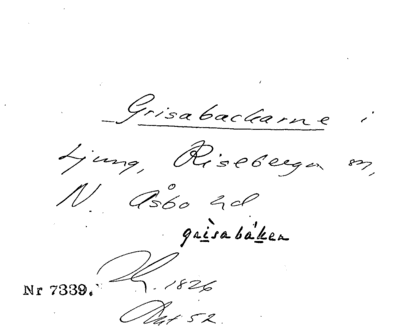 Grisabackarne i
Ljung, Riseberga sn,
N. Åsbo hd
grisabáken
1826
Nr 7339.
52.